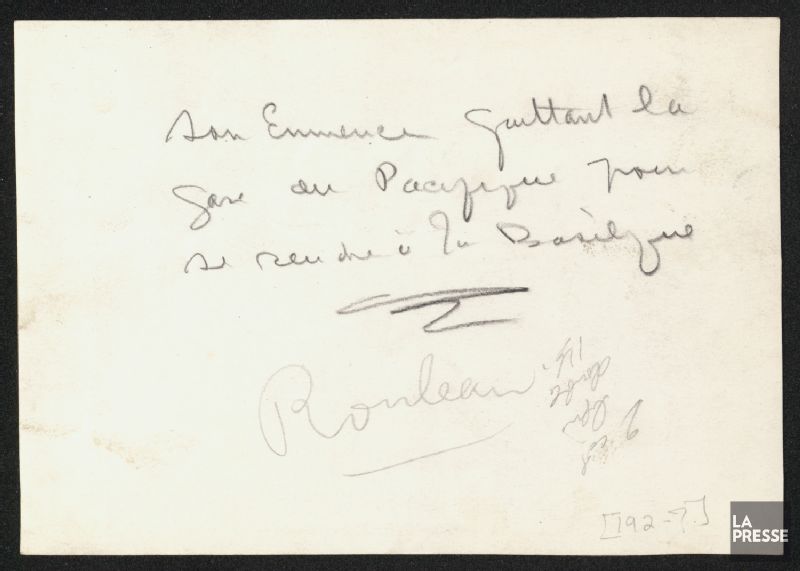 Son Eminence quittant la
gare du Pacifique pour
se rendre à la Basilique
Rouleau
[192-?]
LA
PRESSE